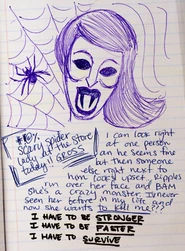 #@%
scary spider
lady at the store
today!! GROSS
I can look right
at one person
an he seems fine
but then someone
else right next to
him looks upset. Ripples
run over her face and BAM
she's a crazy monster. I never
seen her before in my life and
now she wants to kill me???
I HAVE TO BE STRONGER
I HAVE TO BE FASTER
I HAVE TO SURVIVE